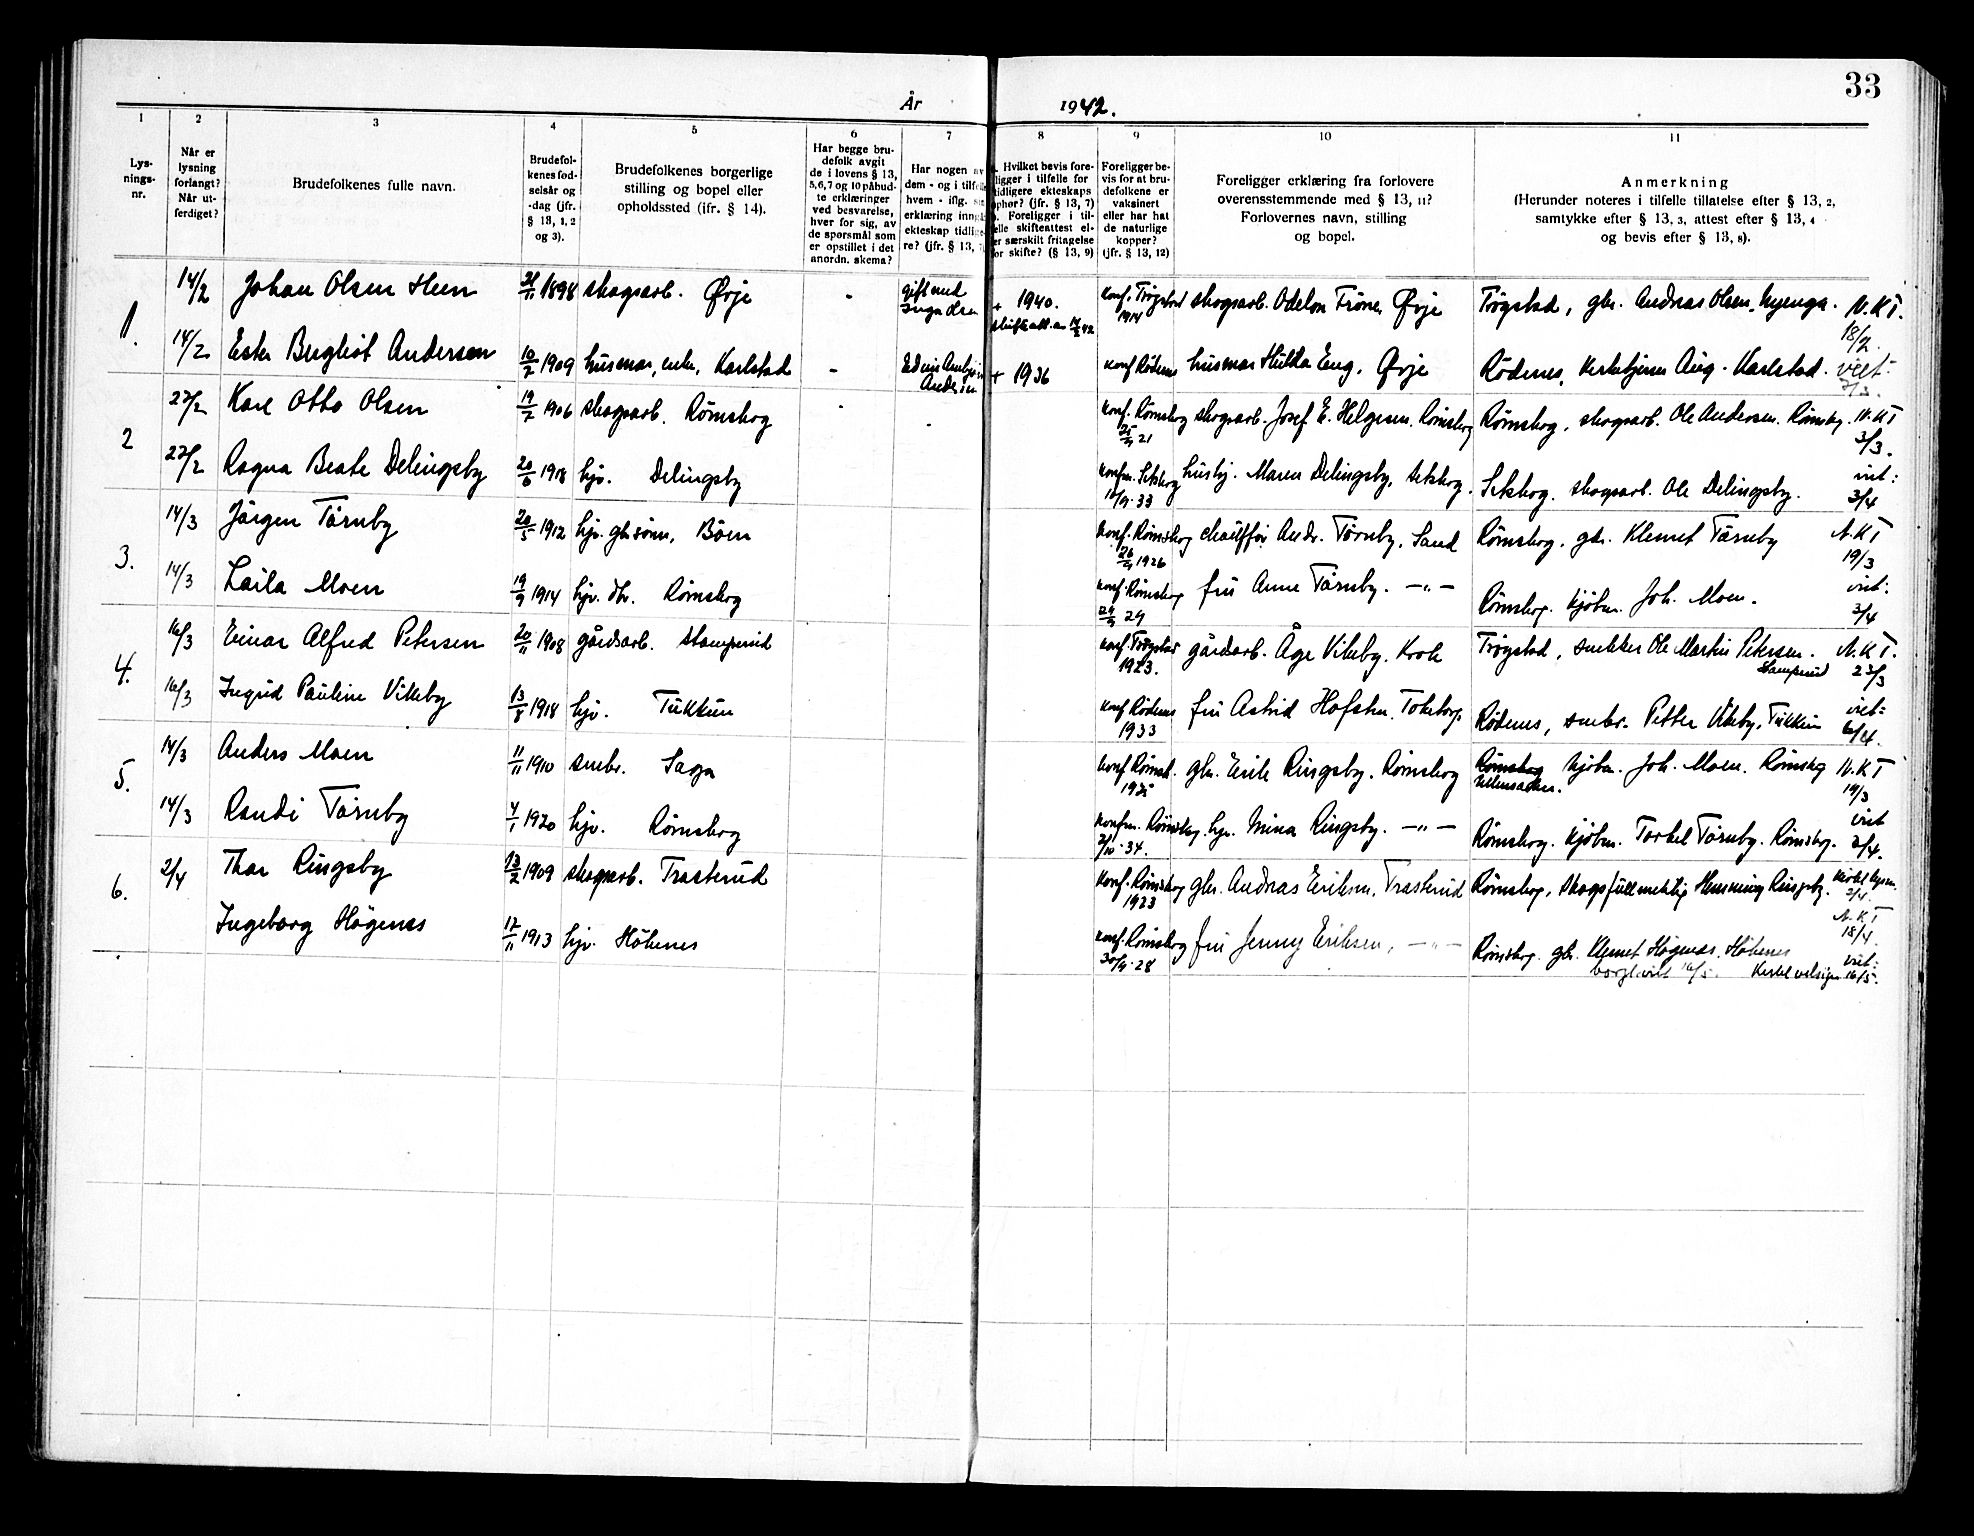 33
År 1942.
1 2 3 4 5 6 7 8 9 10 11
Lys-
nings-
nr.
Når er
lysning
forlangt?
Når ut-
ferdiget?
Brudefolkenes fulle navn.
Brudefol-
kenes fød-
selsår og
-dag (jfr.
§ 13, 1, 2
og 3).
Brudefolkenes borgerlige
stilling og bopel eller
opholdssted (ifr. § 14).
Har begge bru-
defolk avgit
de i lovens § 13,
5,6,7 og 10 påbud-
te erklæringer
ved besvarelse,
hver for sig, av
de spørsmål som
er opstillet i det
anordn. skema?
Har nogen av
dem - og i tilfelle
hvem - iflg.
erklæring inngå
ekteskap tidlige-
re? (jfr. § 13,
Hvilket bevis fore-
ligger i tilfelle for
tidligere ekteskaps
ophør? (jfr. § 13, 7)
Foreligger i til-
felle skifteattest el-
er særskilt fritagelse
for skifte? (§ 13, 9)
Foreligger be-
vis for at bru-
defolkene er
vaksinert
eller har hat
de naturlige
kopper?
(jfr. § 13, 12)
Foreligger erklæring fra forlovere
overensstemmende med § 13, 11?
Forlovernes navn, stilling
og bopel.
Anmerkning
(Herunder noteres i tilfelle tillatelse efter § 13, 2,
samtykke efter § 13, 3, attest efter § 13, 4
og bevis efter § 13, 8).
1. 14/2 Johan Olsen Heen /11 1898 skogsarb. Ørje - gift med Inga + 1940. konf. Trøgstad 1914 skogsarb. Odelon Frone, Ørje Trøgstad, gbr. Andreas Olsen, N.K.T. 18/2.
14/2 Ester Bergliot Andersen 10/2 1909 husmor, enke, Karlstad - + 1936 konf Rødenes husmor Hulda Eng. Ørje Rødenes, kirketjener Aug. Karlstad.
2 27/2 Karl Otto Olsen 19/7 1906 skogsarb. Rømskog konf. Rømskog 25/9 21 skogsarb. Josef E. Helgesen. Rømskog Rømskog, skogsarb. Ole Andersen. Rømskog. N.K.T 3/3.
27/2 Ragna Beate Delingsby 20/6 1918 hjv. Delingsby konfm. Setskog 10/9-33 husbj. Maren Delingsby, Setskog. Setskog. skogsarb. Ole Delingsby. viet: 3/4
3. 14/3 Jørgen Tørnby 20/5 1912 hjv. gbr sønn, Bøen konf. Rømskog 26/9 1926 chauffør Andr. Tørnby, Sand Rømskog, gbr. Klemet Tørnby N.K.T 19/3
14/3 Laila Moen 19/9 1914 hjv. dtr. Rømskog konf. Rømskog 29/9 29 fru Anne Tørnby. —„— Rømskog. kjøbm. Joh. Moen. viet: 3/4
4. 16/3 Einar Alfred Petersen 20/11 1908 gårdsarb. Stamperud konf. Trøgstad 1923. gårdarb. Åge Vikeby. Krok Trøgstad, snekker Ole Martin Petersen. Stamperud N.K.T. 23/3
16/3 Ingrid Pauline Vikeby 13/8 1918 hjv. Tukkun konf Rødenes 1933 fru Astrid Hofstu. Tokeborg. Rødenes, smbr. Petter Vikeby, Tukkun viet: 6/4.
5. 14/3 Anders Moen 11/11 1910 smbr. Saga konf. Rømsk. 1925 gbr. Erik Ringsby. Rømskog Rømskog kjøbm. Joh. Moen. Rømskog N.K.T 19/3
14/3 Randi Tørnby 4/1 1920 hjv. Rømskog konfm. Rømskog. 2/10-34. hjv. Mina Ringsby. —„— Rømskog. kjøbm. Torkel Tørnby. Rømskog. viet 3/4.
6. 2/4 Thor Ringsby 13/2 1909 skogsarb. Trasterud konf. Rømskog 1923 gbr. Andreas Eriksen, Trasterud Rømskog, skogsfullmektig Henning Ringsby. 2/4. N.K.T 18/4.
Ingeborg Høgenes 17/11 1913 hjv. Høkenes konf. Rømskog 30/9-28 fru Jenny Eriksen, —„— Rømskog. gbr. Klemet Høgenes, Høkenes viet:
borgl. viet 16/5. Kirkel velsign 16/5.